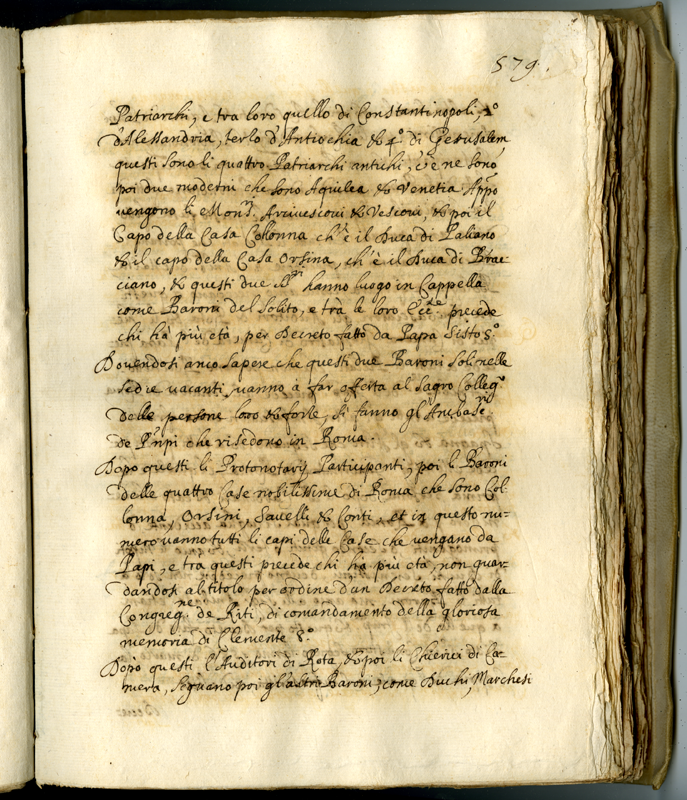 579.
Patriarchi, e tra loro quello di Constantinopoli, 2°
d'Alessandria, terzo d'Antiochia & 4°. di Gerusalem
questi sono li quattro Patriarchi antichi, e ne sono
poi due moderni che sono Aquilea & Venetia. Appo
vengono li Mons.ri Arcivescovi & Vescovi, & poi il
Capo della Casa Collonna ch'è il Duca di Paliano
& il capo della Casa Orsina, ch'è il Duca di Brac-
ciano, & questi due hanno luogo in Cappella
come Baroni del Solito, e trà le loro Ecc.ze precede
chi hà più età, per Decreto fatto da Papa Sisto 5°.
Dovendosi anco sapere che questi due Baroni soli nelle
sedie vacanti vanno à far offerta al Sagro Colleg.o
delle persone loro & forse, si fanno gl'Ambase.ri
de Pnpi che risedono in Roma.
Dopo questi li Protonotarij Participanti, poi li Baroni
delle quattro Case nobilissime di Roma che sono Col-
lonna, Orsini, Savelli & Conti, et in questo nu-
mero vanno tutti li capi delle Case che vengano da
Papi, e tra questi precede chi hà più età, non guar-
dandosi al titolo per ordine d'un Decreto fatto dalla
Congreg.ne de Riti, di comandamento della gloriosa
memoria di Clemente 8°.
Dopo questi l'Auditori di Rota, & poi li Chierici di Ca-
mera, seguano poi gl'altri Baroni, come Duchi, Marchesi